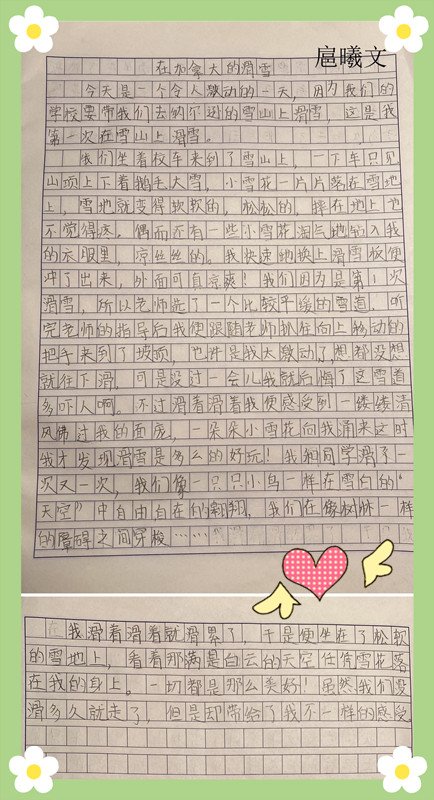 扈曦文
在加拿大的滑雪
今天是一个令人激动的一天，因为我们的
学校要带我们去纳尔逊的雪山上滑雪，这是我
第一次在雪山上滑雪。
我们坐着校车来到了雪山上，一下车只见
山顶上下着鹅毛大雪，小雪花一片片落在雪地
上，雪地就变得软软的，松松的，摔在地上也
不觉得疼。偶而还有一些小雪花淘气地钻入我
的衣服里，凉丝丝的。我快速地换上滑雪板便
冲了出来，外面可真凉爽！我们因为是第1次
滑雪，所以老师选了一个比较平缓的雪道，听
完老师的指导后我便跟随老师扒住向上移动的
把手来到了坡顶，也许是我太激动了，想都没想
就往下滑，可是没过一会儿我就后悔了这雪道
多吓人啊。不过滑着滑着我便感受到一缕缕清
风拂过我的面庞，一朵朵小雪花向我涌来这时
我才发现滑雪是多么的好玩！我和同学滑了一
次又一次，我们像一只只小鸟一样在雪白的“
天空”中自由自在的翱翔，我们在像树林一样
的障碍之间穿梭……
我滑着滑着就滑累了，于是便坐在了松软
的雪地上，看着那满是白云的天空任凭雪花落
在我的身上。一切都是那么美好！虽然我们没
滑多久就走了，但是却带给了我不一样的感受